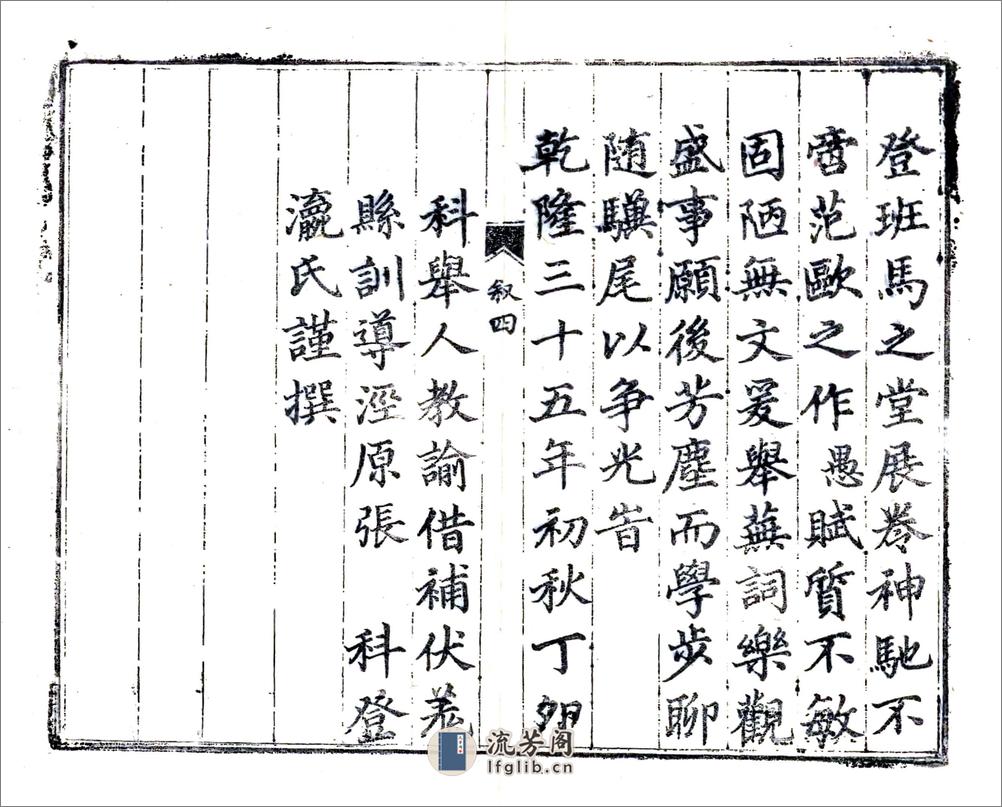 登班馬之堂展卷神馳不
啻范歐之作愚賦質不敏
固陋無文爰舉蕪詞樂觀
盛事願後芳塵而學步聊
随驥尾以争光旹
乾隆三十五年初秋丁夘
叙四
科舉人教諭借補伏羌
縣訓導涇原張 科登
瀛氏謹撰
流芳阁
lfglib.cn